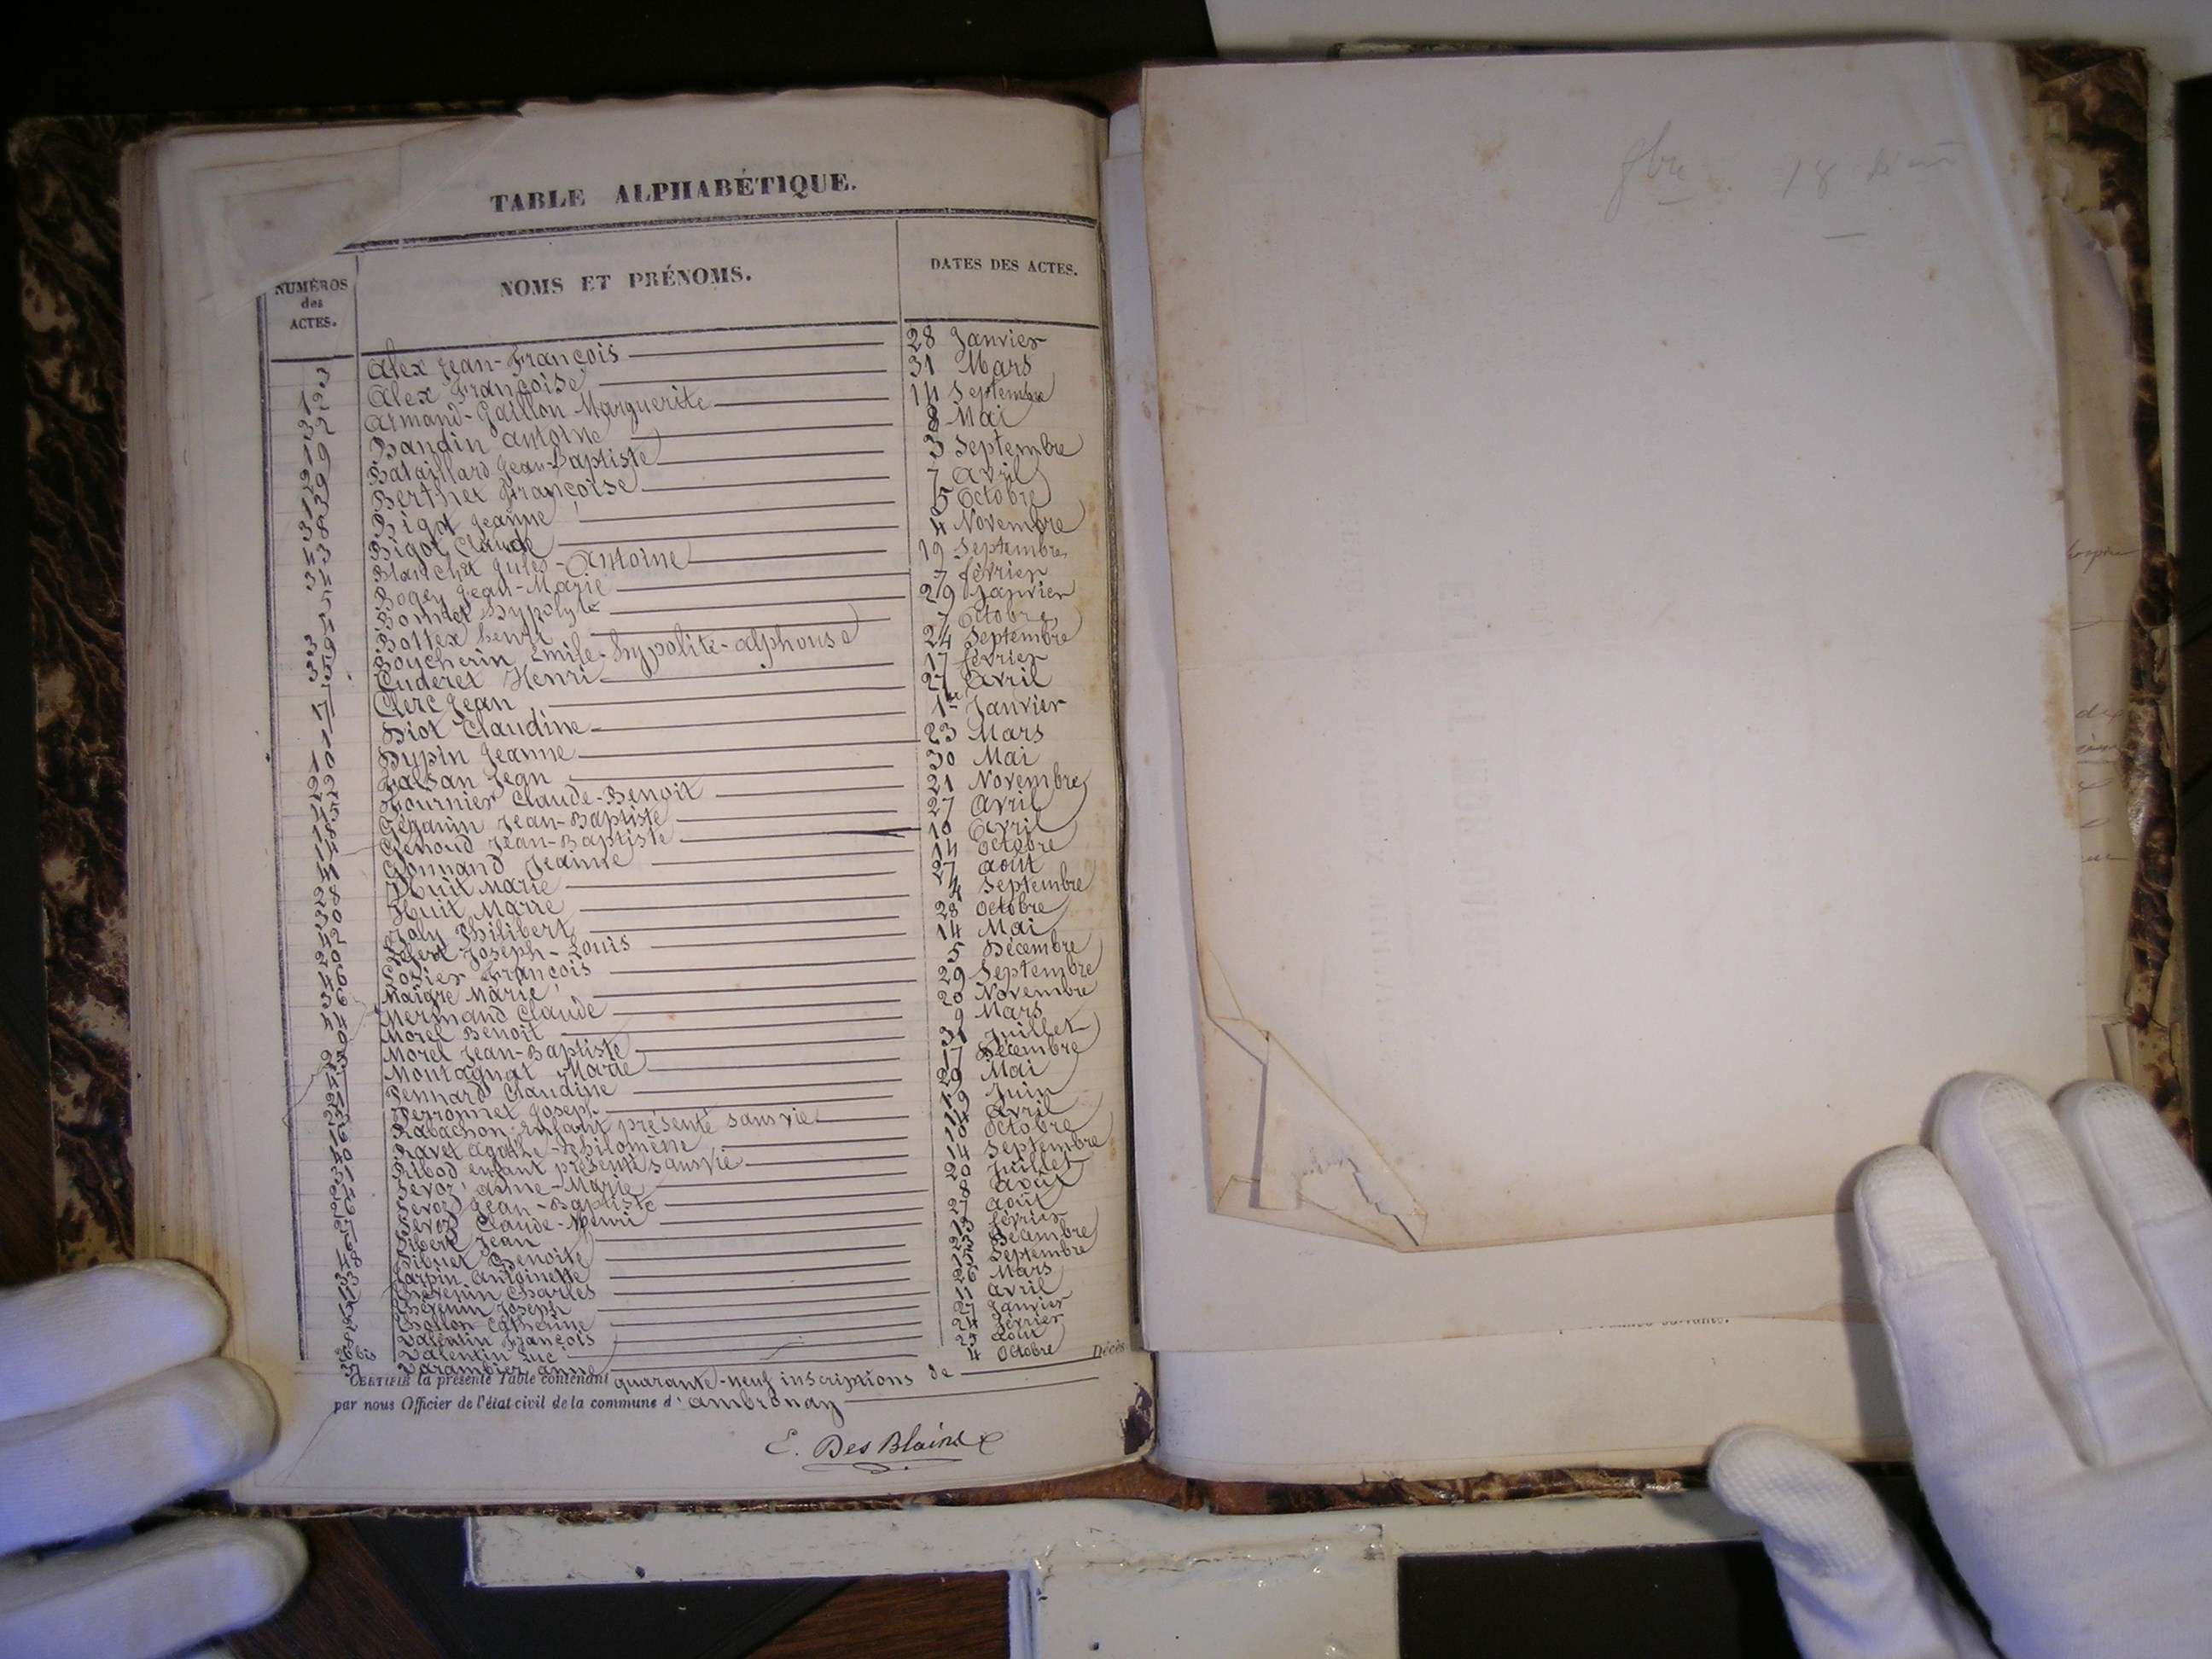 TABLE ALPHABÉTIQUE.
NUMÉROS des ACTES. NOMS ET PRÉNOMS. DATES DES ACTES.
3 Alex Jean-François 28 Janvier
12 Alex Françoise 31 Mars
32 Armand-Gaillon Marguerite 14 Septembre
19 Bandin Antoine 8 Mai
29 Bataillard Jean-Baptiste 3 Septembre
13 Berthet Françoise 7 Avril
38 Bigot Jeanne 5 Octobre
43 Bigot Claude 4 Novembre
34 Blanchet Jules-Antoine 19 Septembre
Bogey Jean-Marie 7 février
Bonnet Hypolyte 29 Janvier
39 Bottex henri 7 Octobre
35 Boucherin Emile-hypolite-alphonse 24 Septembre
7 Cuderet Henri 17 février
17 Clerc Jean 27 Avril
1 Diot Claudine 1er Janvier
10 Dupin Jeanne 23 Mars
22 Falsan Jean 30 Mai
45 Fournier Claude-Benoit 21 Novembre
18 Géganin Jean-Baptiste 27 Avril
14 Genoud Jean-Baptiste 10 Avril
41 Gonnand Jeanne 14 Octobre
28 Huit Marie 27 Août
30 Huit Marie 4 Septembre
42 Joly Philibert 28 Octobre
20 Joseph-Louis 14 Mai
46 Losier François 5 Décembre
36 Maigre Marie 29 Septembre
44 Mermand Claude 20 Novembre
9 Morel Benoit 9 Mars
25 Morel Jean-Baptiste 31 Juillet
47 Montagnat Marie 17 Décembre
21 Pennard Claudine 29 Mai
23 Perronnet Joseph 19 Juin
16 Rabachon enfant présenté sans vie Avril
40 Ravet Agathe-Philomène Octobre
31 Ribod enfant présenté sans vie 14 Septembre
24 Sevoz Anne-Marie 20 Juillet
26 Sevoz Jean-Baptiste 8 Août
27 Sevoz Claude-Henri 27 Août
6 Sibert Jean 13 février
48 Sibuet Benoite Décembre
33 Tarpin Antoinette Septembre
11 Thévenin Charles 26 Mars
15 Thévenin Joseph 11 Avril
2 Thollon Catherine 27 Janvier
8 Valentin François 24 février
26 bis Valentin Luc Août
37 Varambier Anne 4 Octobre
CERTIFIÉ la présente Table contenant quarante-neuf inscriptions de Décès
par nous Officier de l'état civil de la commune d'Ambronay
E. Des Blains